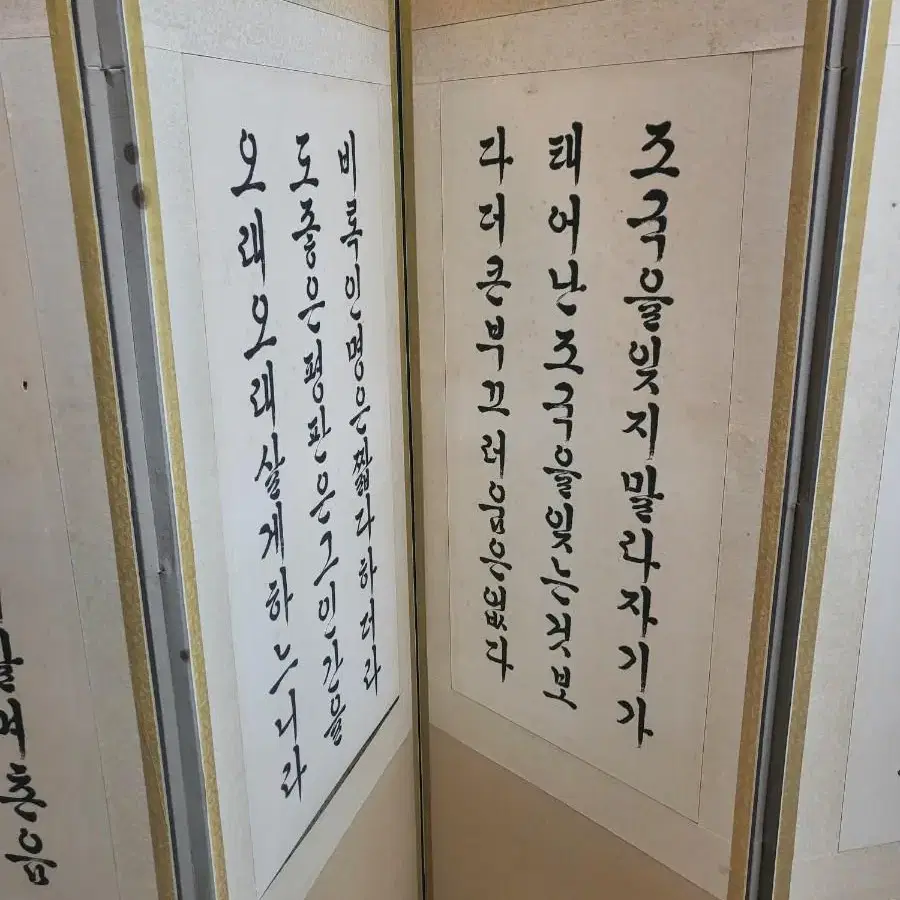 조국을잊지말라자기가
태어난조국을잊는것보
다더큰부끄러움은없다
비록인명은짧다하더라
도좋은평판은그인간을
오래오래살게하느니라